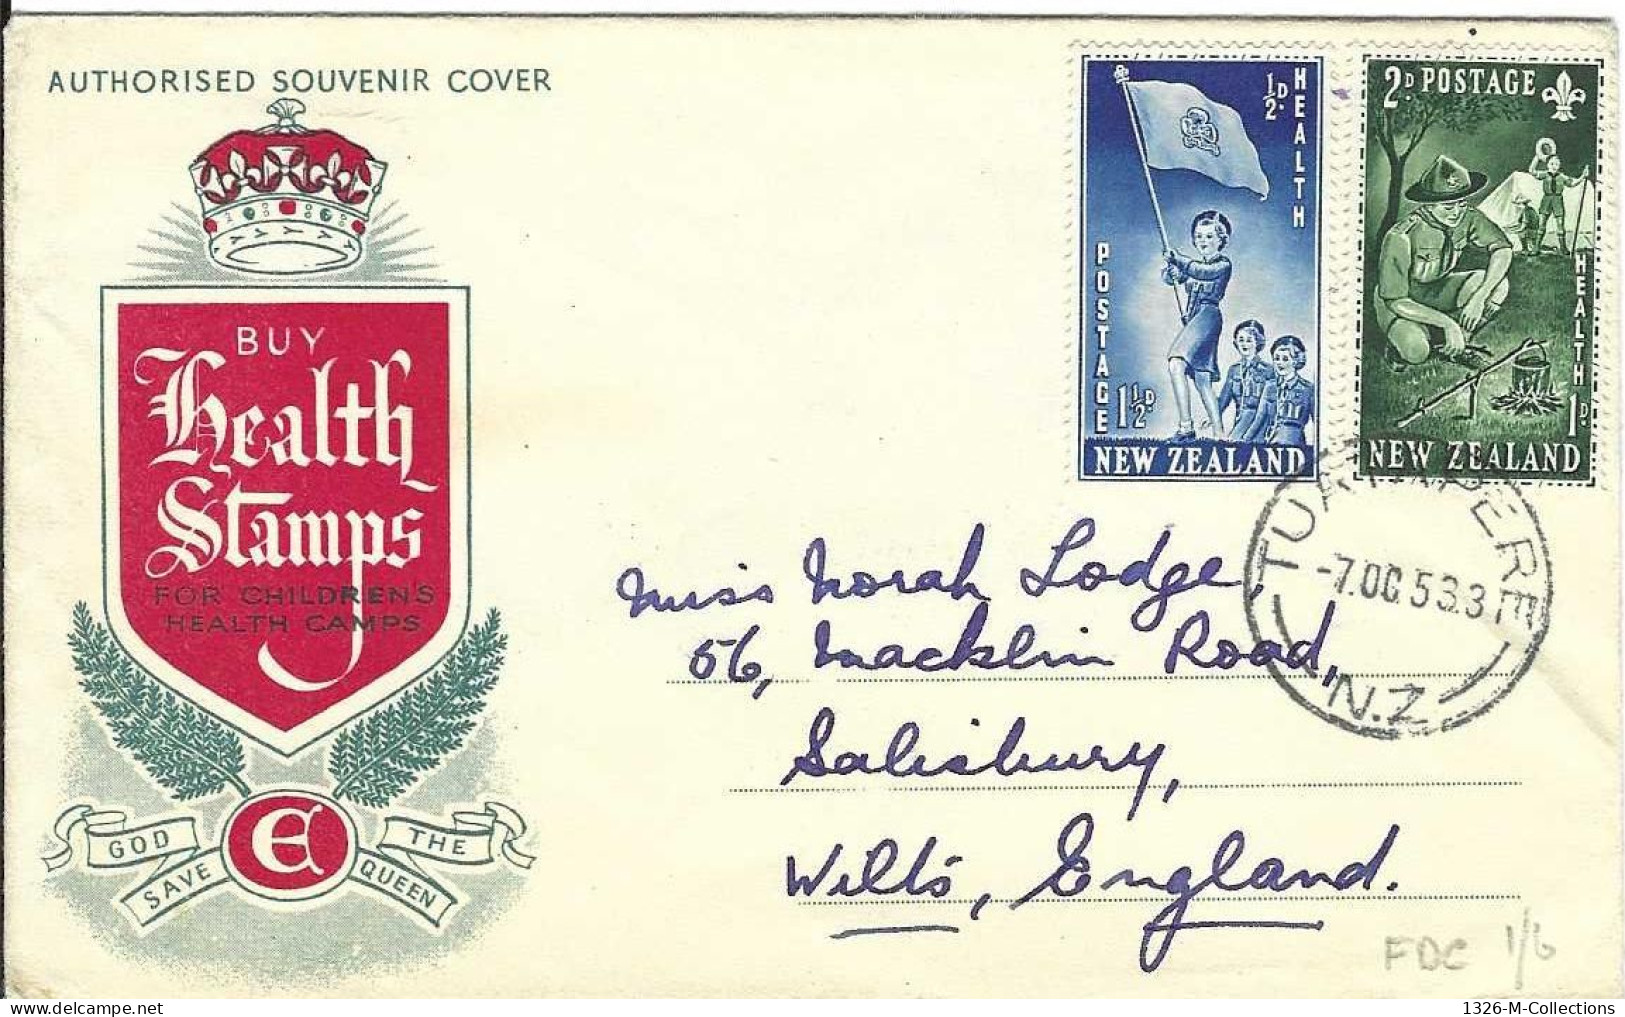 AUTHORISED SOUVENIR COVER
BUY
Health
Stamps
FOR CHILDREN'S
HEALTH CAMPS
GOD SAVE THE QUEEN
E
½D. HEALTH
POSTAGE
1½D.
NEW ZEALAND
2D. POSTAGE
HEALTH 1D.
NEW ZEALAND
-7.OC.53.3
N.Z.
Miss Norah Lodge,
56, Macklin Road,
Salisbury,
Wilts, England.
FDC 1/6
1326-M-Collections